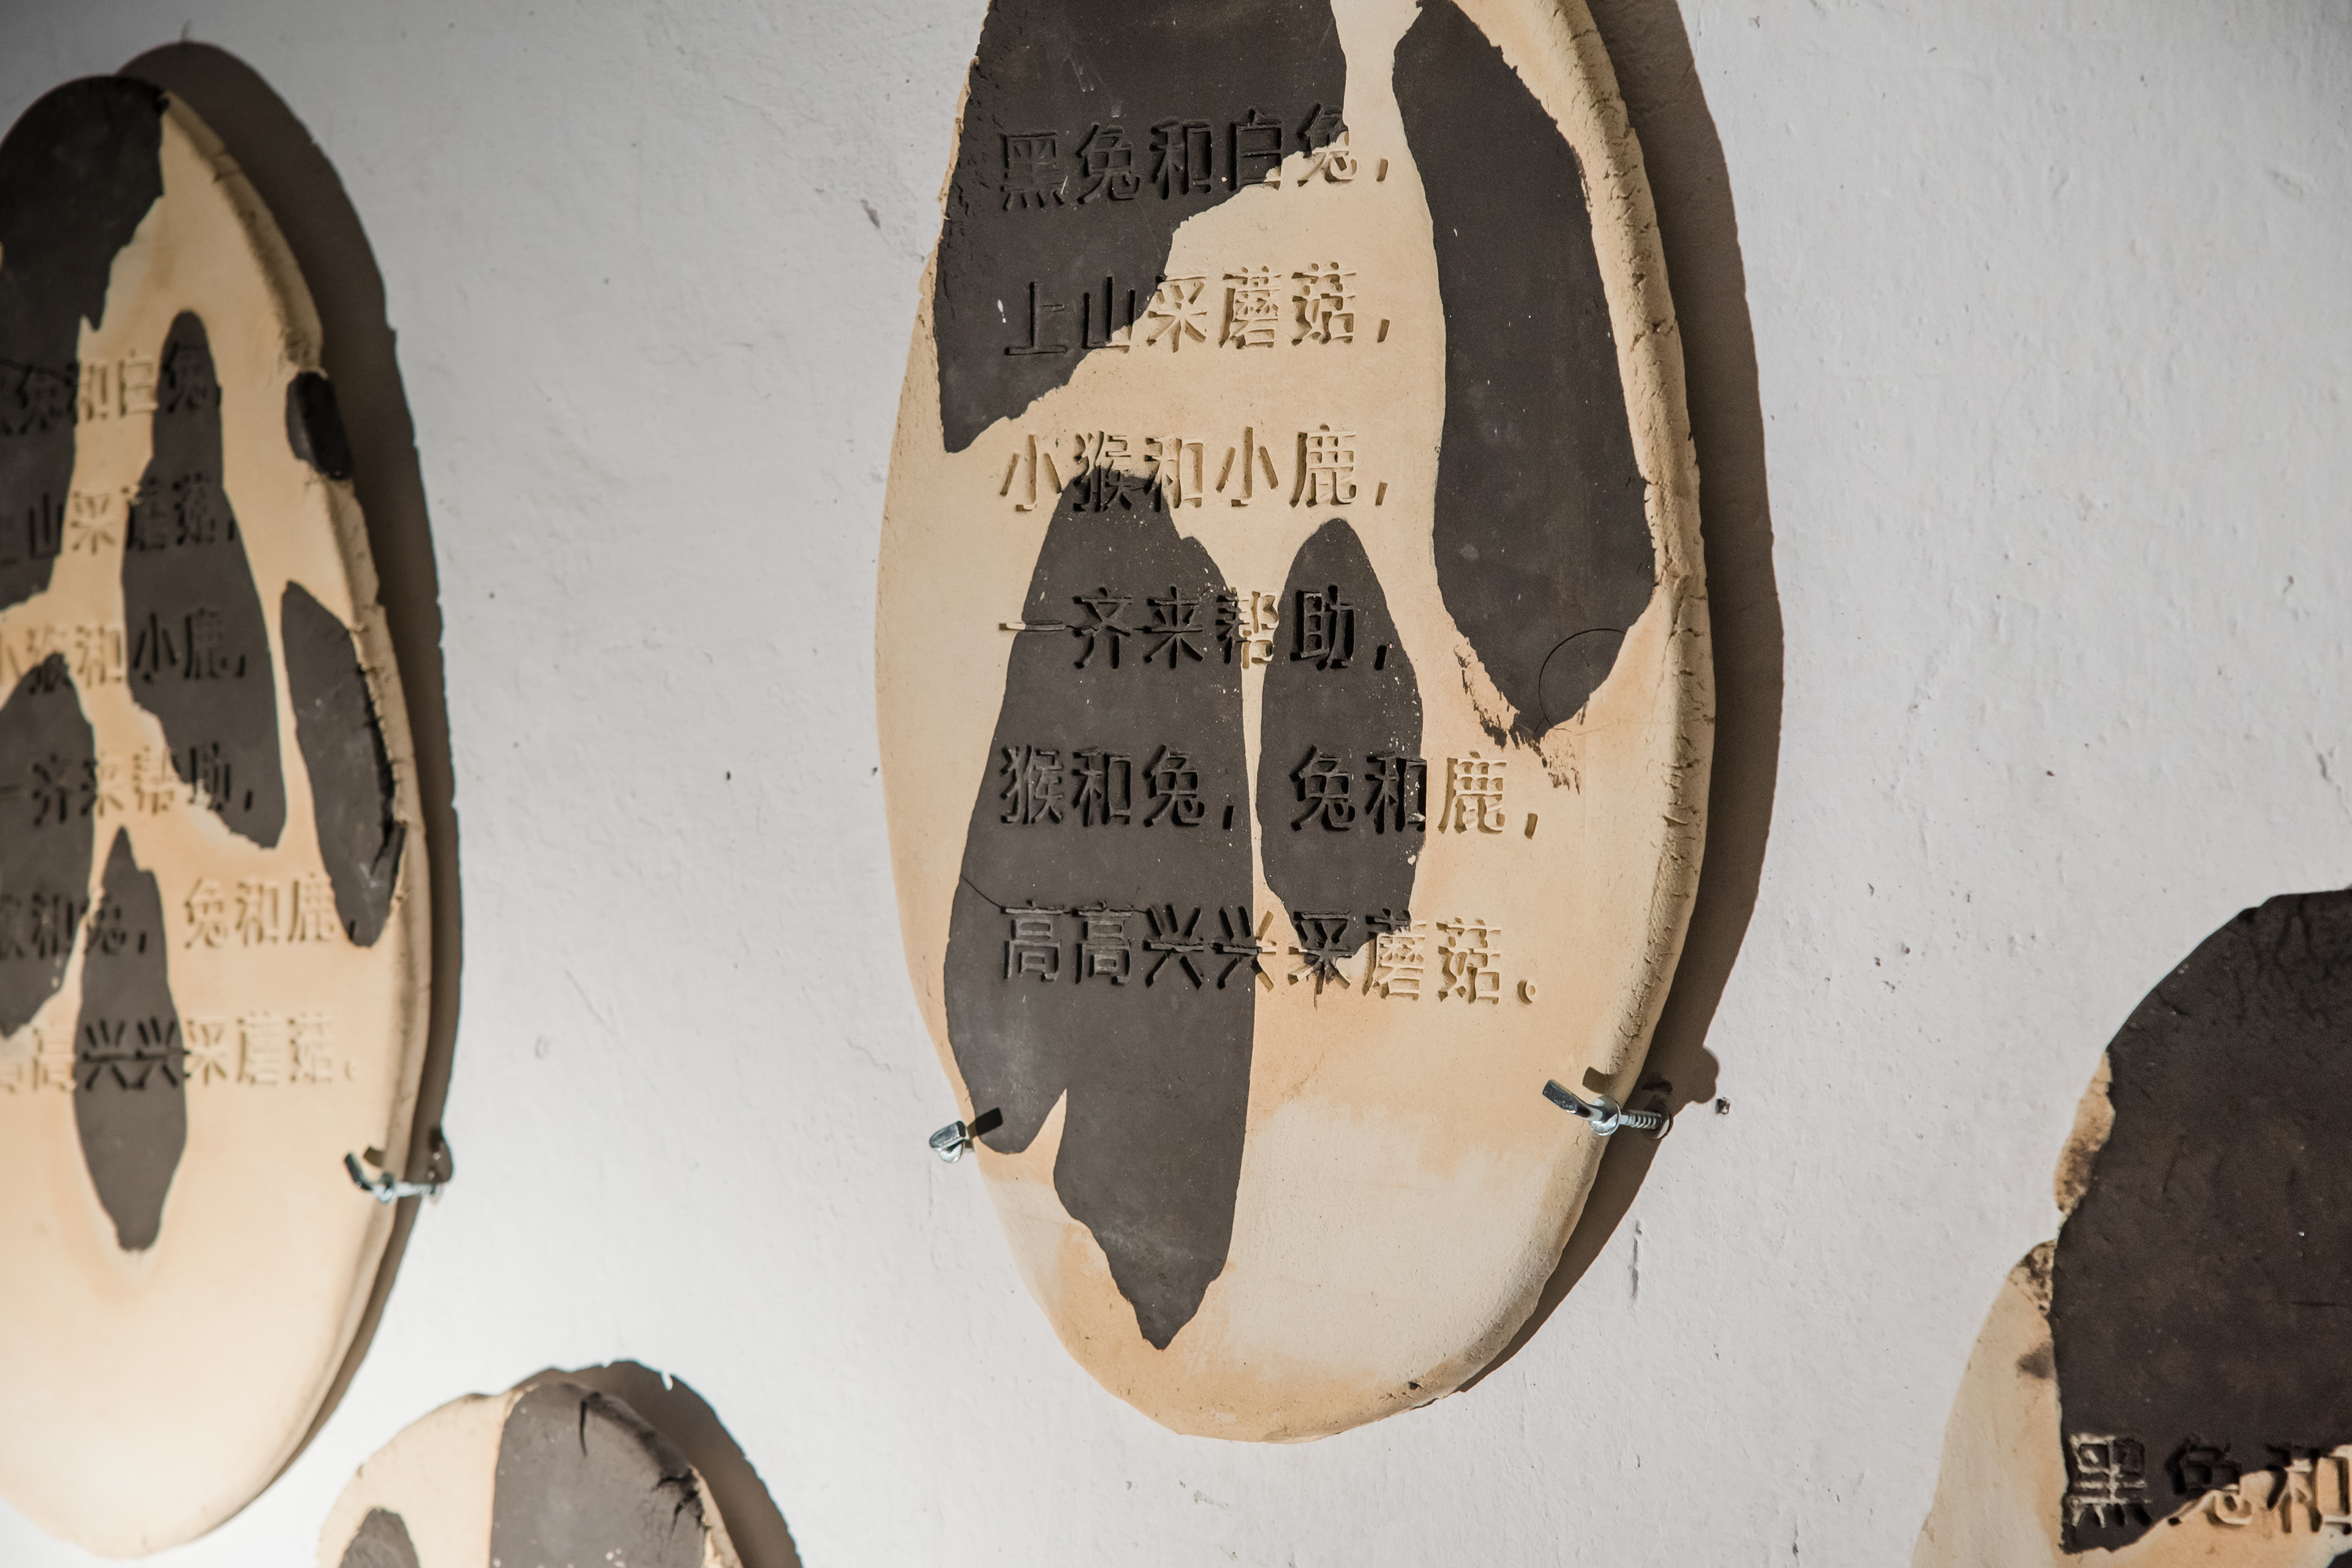 黑兔和白兔,
上山采蘑菇,
小猴和小鹿,
一齐来帮助,
猴和兔, 兔和鹿,
高高兴兴采蘑菇。
兔和白兔,
上山采蘑菇,
小猴和小鹿,
一齐来帮助,
猴和兔, 兔和鹿,
高高兴兴采蘑菇。
黑兔和